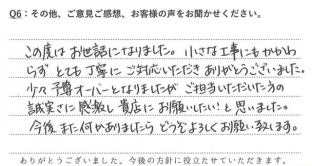 Q6：その他、ご意見ご感想、お客様の声をお聞かせください。
この度はお世話になりました。小さな工事にもかかわ
らず とても丁寧にご対応いただき ありがとうございました。
少々予算オーバーとなりましたが ご担当いただいた方の
誠実さに感激し 貴店にお願いしたい! と思いました。
今後また何かありましたら どうぞよろしくお願い致します。
ありがとうございました。今後の方針に役立たせていただきます。